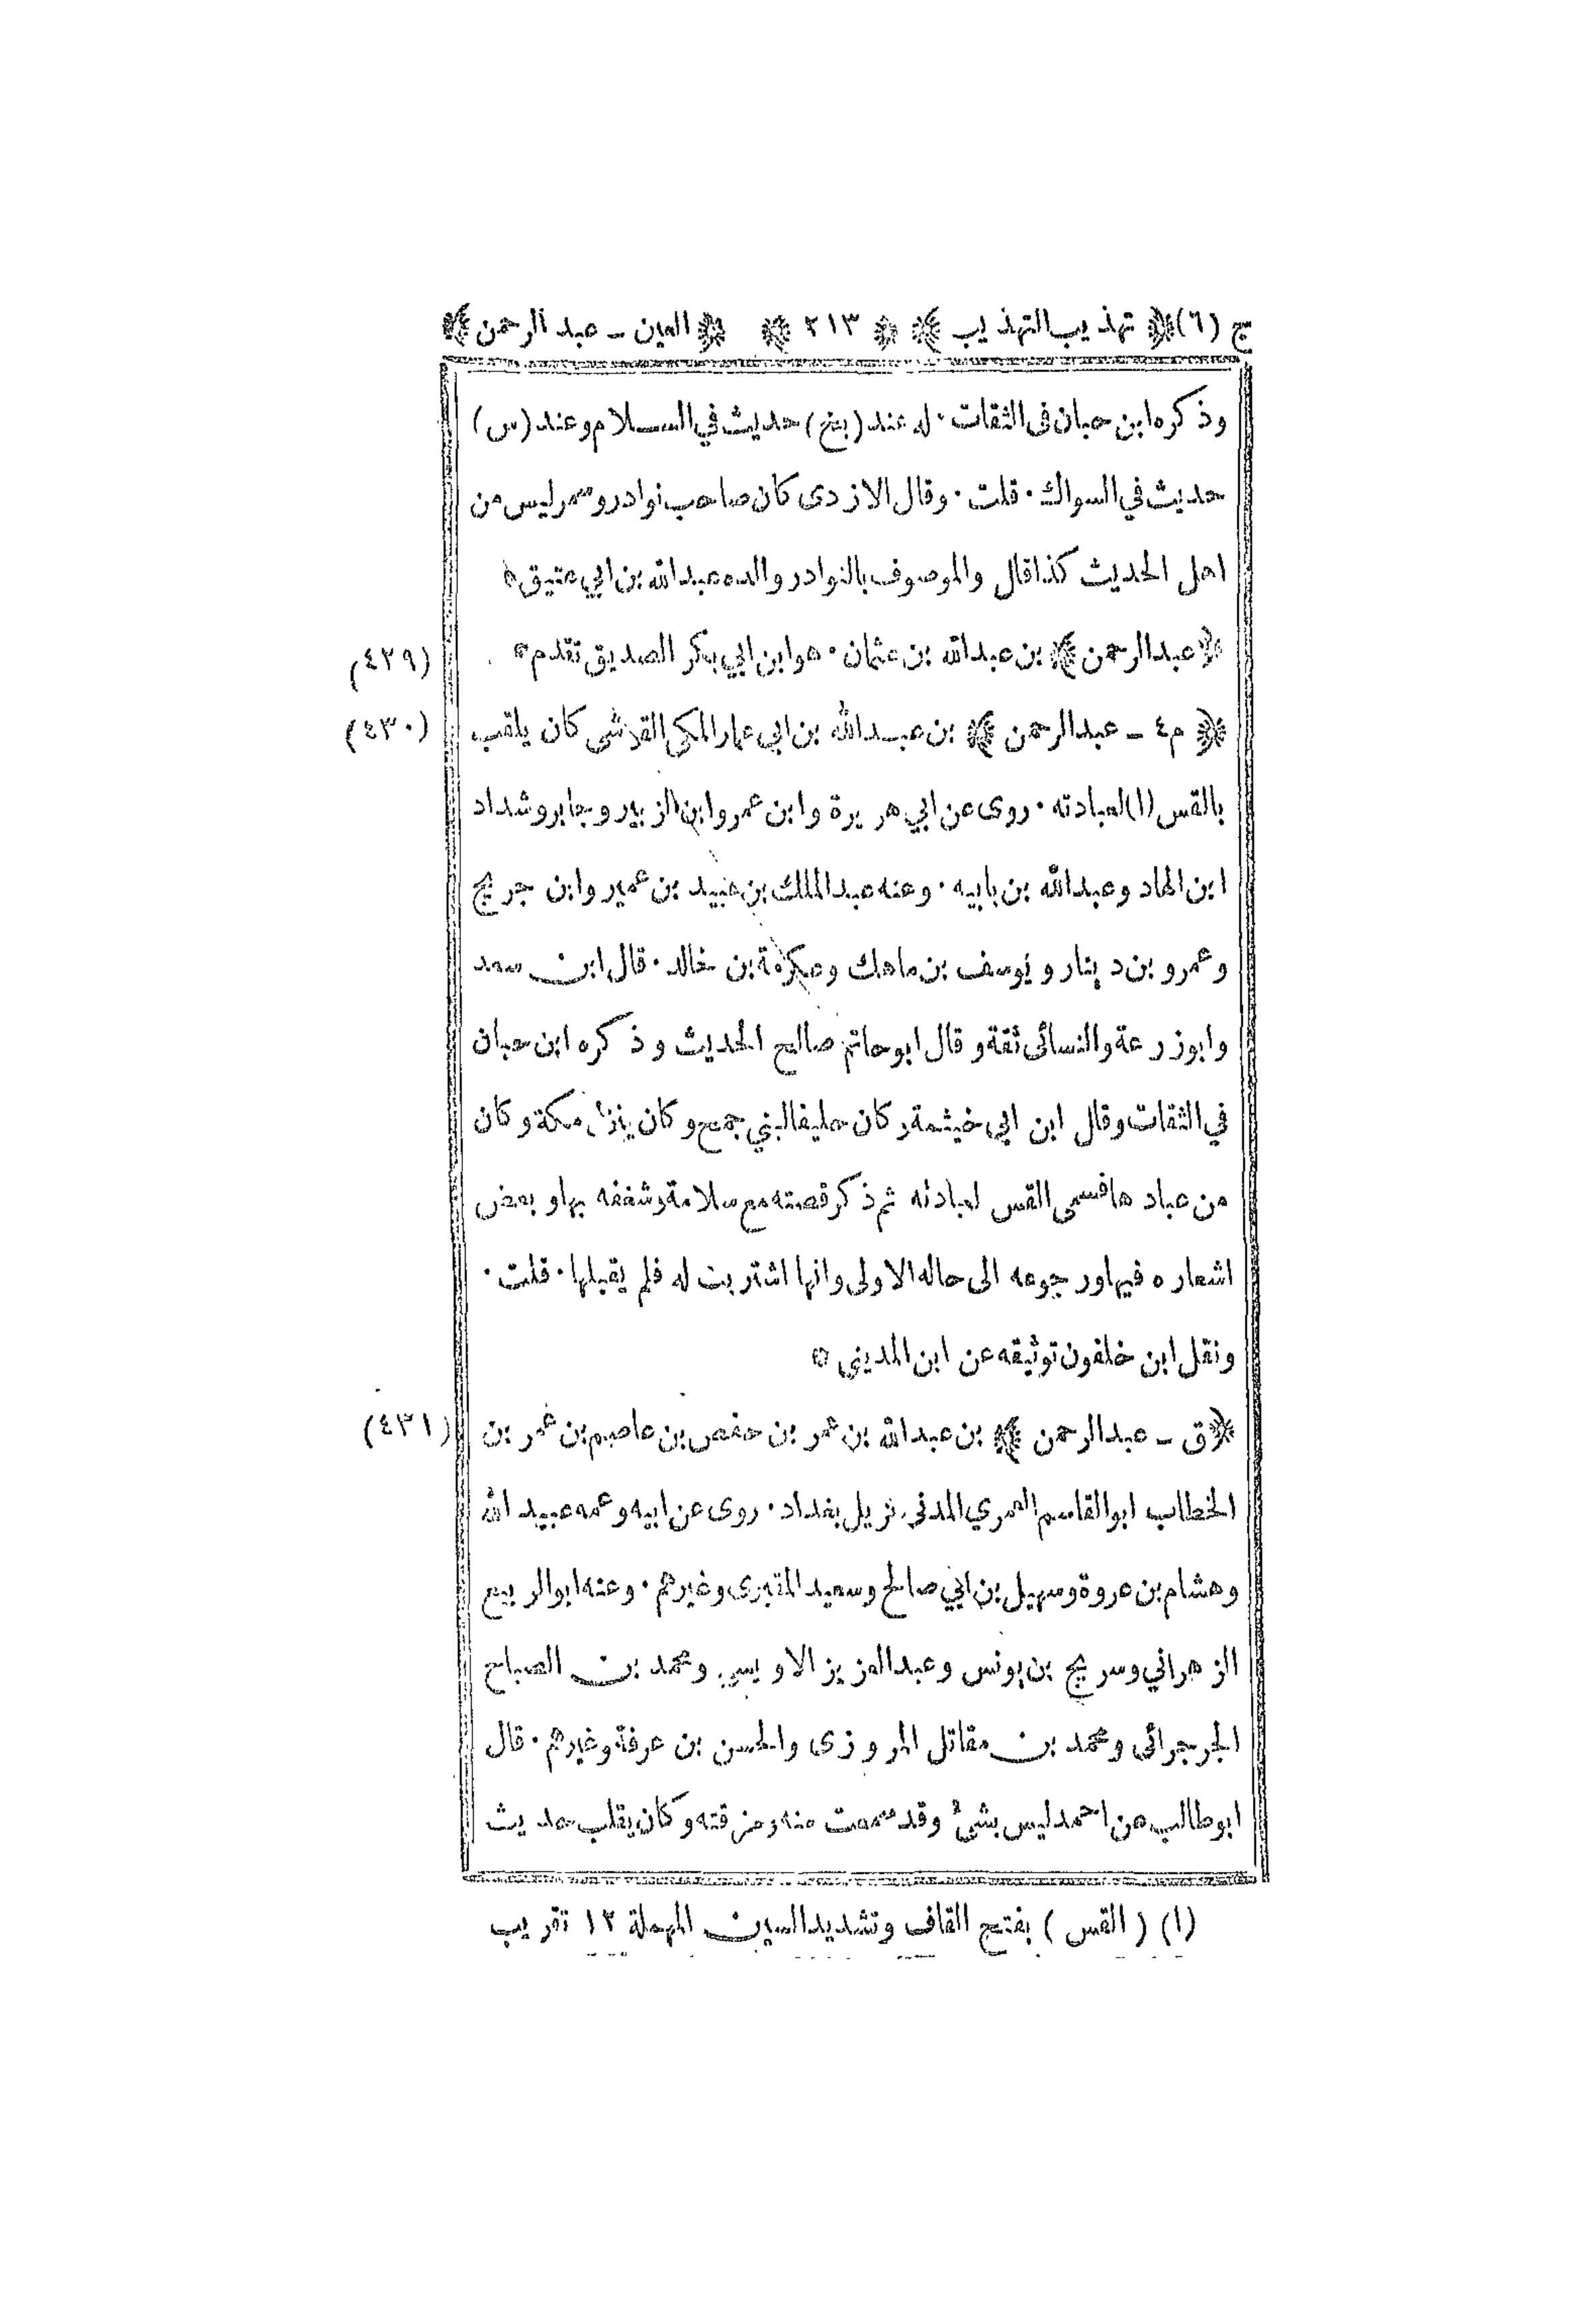 ج (٦) ﴿ تهذيب التهذيب ﴾ ﴿ ٢١٣ ﴾ ﴿ العين ـ عبد الرحمن ﴾
وذكره ابن حبان فى الثقات ٠ له عند (بخ) حديث في السلام وعند (س)
حديث في السواك ٠ قلت ٠ وقال الازدى كان صاحب نوادر وسمر ليس من
اهل الحديث كذا قال والموصوف بالنوادر والده عبد الله بن ابي عتيق ٥
(٤٢٩) ﴿ عبد الرحمن ﴾ بن عبد الله بن عثمان ٠ هو ابن ابي بكر الصديق تقدم ٥
(٤٣٠) ﴿ م ٤ ـ عبد الرحمن ﴾ بن عبد الله بن ابي عمار المكي القرشى كان يلقب
بالقس (١) لعبادته ٠ روى عن ابي هريرة وابن عمر وابن الزبير وجابر وشداد
ابن الهاد وعبد الله بن بابيه ٠ وعنه عبد الملك بن عبيد بن عمير وابن جريج
وعمرو بن دينار ويوسف بن ماهك وعكرمة بن خالد ٠ قال ابن سعد
وابو زرعة والنسائى ثقة وقال ابو حاتم صالح الحديث وذكره ابن حبان
في الثقات وقال ابن ابي خيثمة وكان حليفا لبني جمح وكان ينزل مكة وكان
من عبادها فسمى القس لعبادته ثم ذكر قصته مع سلامة وشغفه بها وبعض
اشعاره فيها ورجوعه الى حاله الاولى وانها اشتريت له فلم يقبلها ٠ قلت ٠
ونقل ابن خلفون توثيقه عن ابن المديني ٥
(٤٣١) ﴿ ق ـ عبد الرحمن ﴾ بن عبد الله بن عمر بن حفص بن عاصم بن عمر بن
الخطاب ابو القاسم العمري المدني نزيل بغداد ٠ روى عن ابيه وعمه عبيد الله
وهشام بن عروة وسهيل بن ابي صالح وسعيد المقبرى وغيرهم ٠ وعنه ابو الربيع
الزهراني وسريج بن يونس وعبد العزيز الاويسي ومحمد بن الصباح
الجرجرائى ومحمد بن مقاتل المروزى والحسن بن عرفة وغيرهم ٠ قال
ابو طالب عن احمد ليس بشئ وقد سمعت منه ومزقته وكان يقلب حديث
(١) (القس) بفتح القاف وتشديد السين المهملة ١٢ تقريب